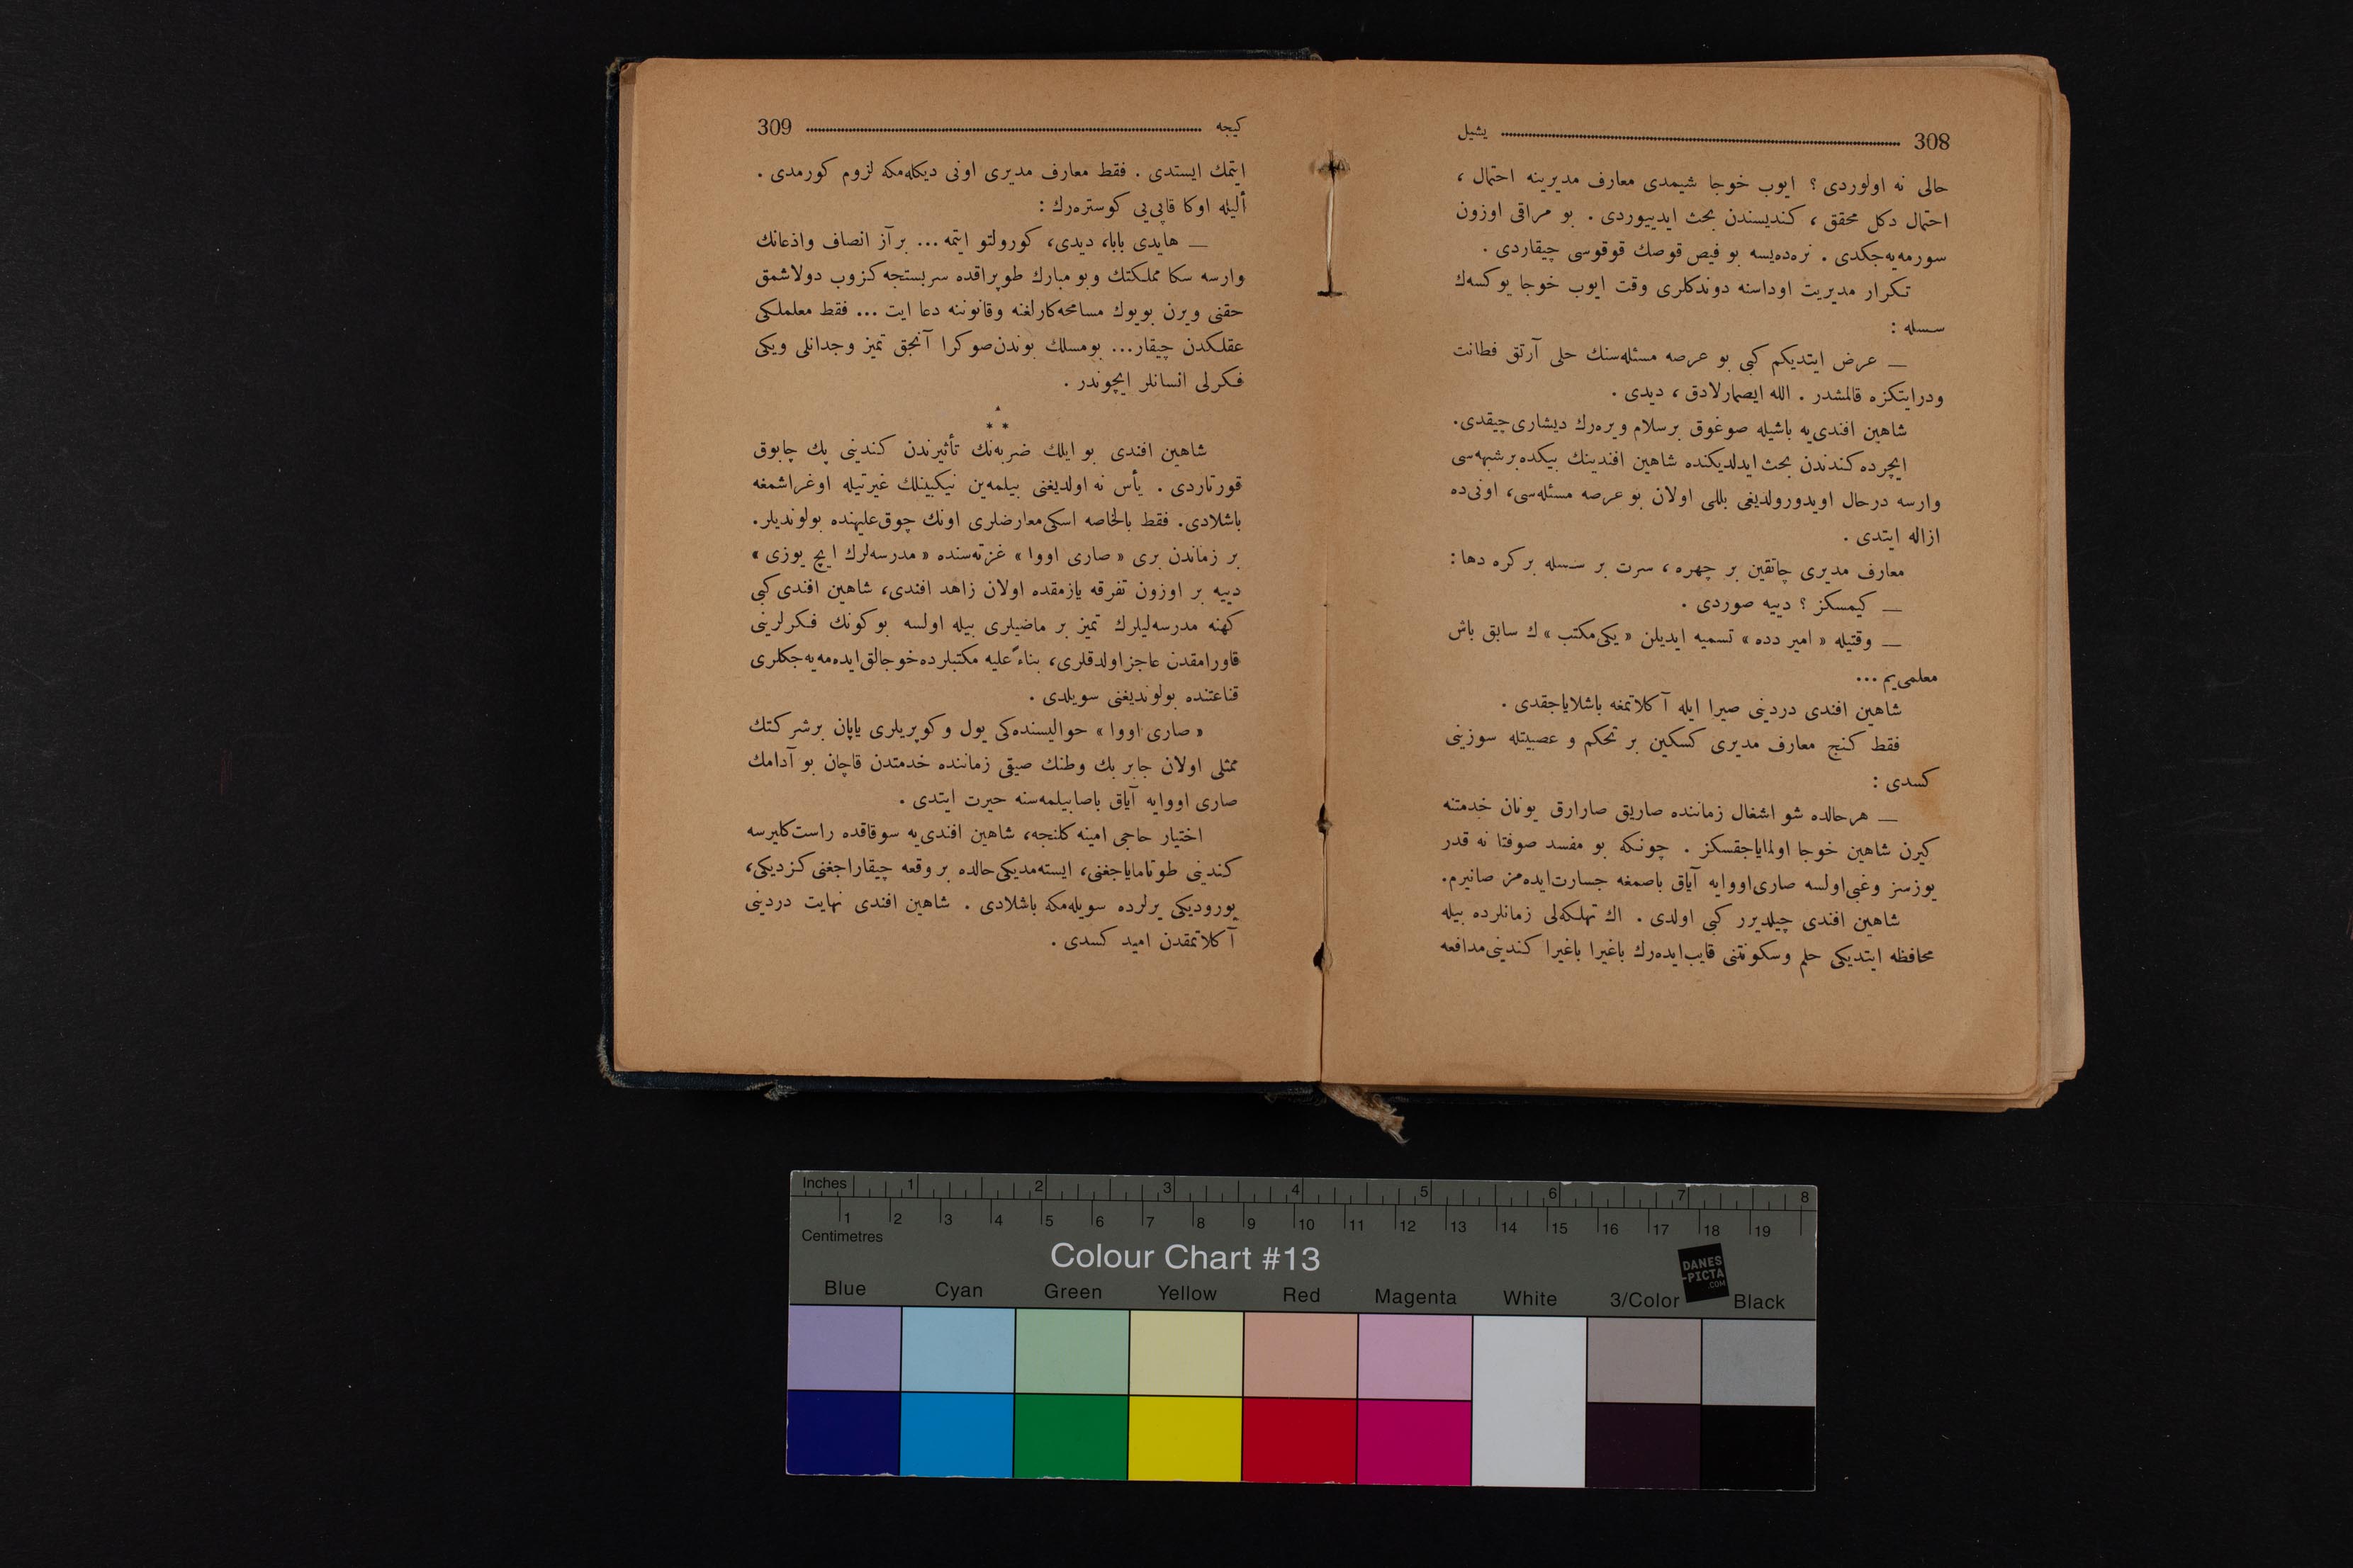 308 يشيل
حالی نه اولوردی؟ ايوب خوجا شيمدی معارف مديرينه احتمال،
احتمال دكل محقق، كنديسندن بحث ايدييوردی. بو مراقی اوزون
سورمه‌يه‌جكدی. نره‌ده‌يسه بو فيص قوصك قوقوسی چيقاردی.
تكرار مديريت اوداسنه دوندكلری وقت ايوب خوجا يوكسه‌ك
سسله:
— عرض ايتديكم كبی بو عرصه مسئله‌سنك حلی آرتق فطانت
ودرايتكزه قالمشدر. الله ايصمارلادق، ديدی.
شاهين افندی‌يه باشيله صوغوق برسلام ويره‌رك ديشاری چيقدی.
ايچرده كندندن بحث ايدلديكنده شاهين افندينك بيكده برشبهه‌سی
وارسه درحال اويدورولديغی بللی اولان بو عرصه مسئله‌سی، اونی‌ده
ازاله ايتدی.
معارف مديری چاتقين بر چهره، سرت بر سسله بر كره دها:
— كيمسكز؟ دييه صوردی.
— وقتيله «امير دده» تسميه ايديلن «يكی مكتب»ك سابق باش
معلمی‌يم...
شاهين افندی دردينی صيرا ايله آكلاتمغه باشلاياجقدی.
فقط كنج معارف مديری كسكين بر تحكم و عصبيتله سوزينی
كسدی:
— هرحالده شو اشغال زماننده صاريق صارارق يونان خدمتنه
كيرن شاهين خوجا اولماياجقسكز. چونكه بو مفسد صوفتا نه قدر
يوزسز وغبی‌اولسه صاری‌اووايه آياق باصمغه جسارت‌ايده‌مز صانيرم.
شاهين افندی چيلديرر كبی اولدی. اك تهلكه‌لی زمانلرده بيله
محافظه ايتديكی حلم وسكونتنی قايب‌ايده‌رك باغيرا باغيرا كندينی‌مدافعه
كيجه 309
ايتمك ايستدی. فقط معارف مديری اونی ديكله‌مكه لزوم كورمدی.
أليله اوكا قاپی‌يی كوستره‌رك:
— هايدی بابا، ديدی، كورولتو ايتمه... برآز انصاف واذعانك
وارسه سكا مملكتك وبو مبارك طوپراقده سربستجه كزوب دولاشمق
حقنی ويرن بويوك مسامحه‌كارلغنه وقانوننه دعا ايت... فقط معلملكی
عقلكدن چيقار... بومسلك بوندن‌صوكرا آنجق تميز وجدانلی ويكی
فكرلی انسانلر ايچوندر.
* * *
شاهين افندی بو ايلك ضربه‌نك تأثيرندن كندينی پك چابوق
قورتاردی. يأس نه اولديغنی بيلمه‌ين نيكبينلك غيرتيله اوغراشمغه
باشلادی. فقط بالخاصه اسكی‌معارضلری اونك چوق‌عليهنده بولونديلر.
بر زماندن بری «صاری اووا» غزته‌سنده «مدرسه‌لرك ايچ يوزی»
دييه بر اوزون تفرقه يازمقده اولان زاهد افندی، شاهين افندی كبی
كهنه مدرسه‌ليلرك تميز بر ماضيلری بيله اولسه بوكونك فكرلرينی
قاورامقدن عاجز اولدقلری، بناءً عليه مكتبلرده خوجالق‌ايده‌مه‌يه‌جكلری
قناعتنده بولونديغنی سويلدی.
«صاری اووا» حواليسنده‌كی يول وكوپريلری ياپان برشركتك
ممثلی اولان جابر بك وطنك صيقی زماننده خدمتدن قاچان بو آدامك
صاری اووايه آياق باصابيلمه‌سنه حيرت ايتدی.
اختيار حاجی امينه كلنجه، شاهين افندی‌يه سوقاقده راست كليرسه
كندينی طوتاماياجغنی، ايسته‌مديكی حالده بر وقعه چيقاراجغنی كزديكی،
يوروديكی يرلرده سويله‌مكه باشلادی. شاهين افندی نهايت دردينی
آكلاتمقدن اميد كسدی.
Inches 1 2 3 4 5 6 7 8
1 2 3 4 5 6 7 8 9 10 11 12 13 14 15 16 17 18 19
Centimetres
Colour Chart #13
DANES
-PICTA
.COM
Blue Cyan Green Yellow Red Magenta White 3/Color Black